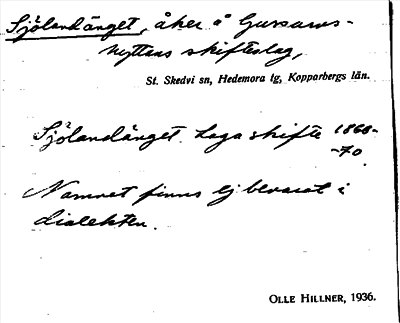 Sjölandänget, åker å Gussarvs-
hyttans skifteslag,
St. Skedvi sn, Hedemora tg, Kopparbergs län.
Sjölandänget. Laga skifte 1868-
-70.
Namnet finns ej bevarat i
dialekten.
OLLE HILLNER, 1936.